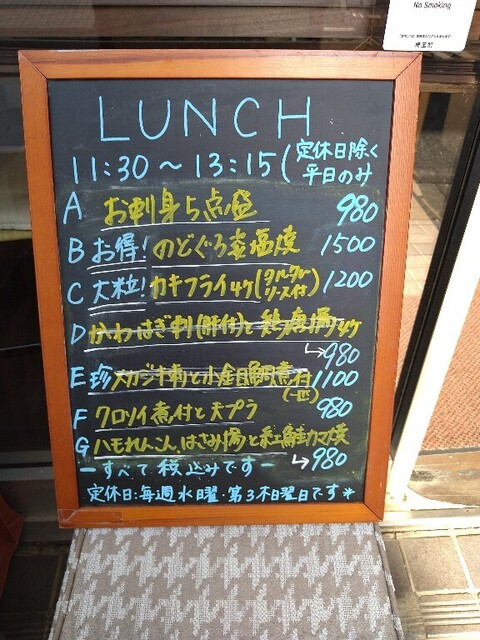 No Smoking
LUNCH
11:30～13:15(定休日除く
平日のみ
A お刺身5点盛 980
B お得!のどぐろ姿塩焼 1500
C 大粒!カキフライ4ケ(タルタルソース付) 1200
D かわはぎ刺(肝付)と鶏唐揚げ4ケ
↳980
E 珍メカジキ刺と小金目鯛煮付 1100
(一匹)
F クロソイ煮付と天プラ 980
G ハモれんこんはさみ揚と紅鮭カマ焼
ーすべて税込みですー ↳980
定休日:毎週水曜・第3木曜日です*